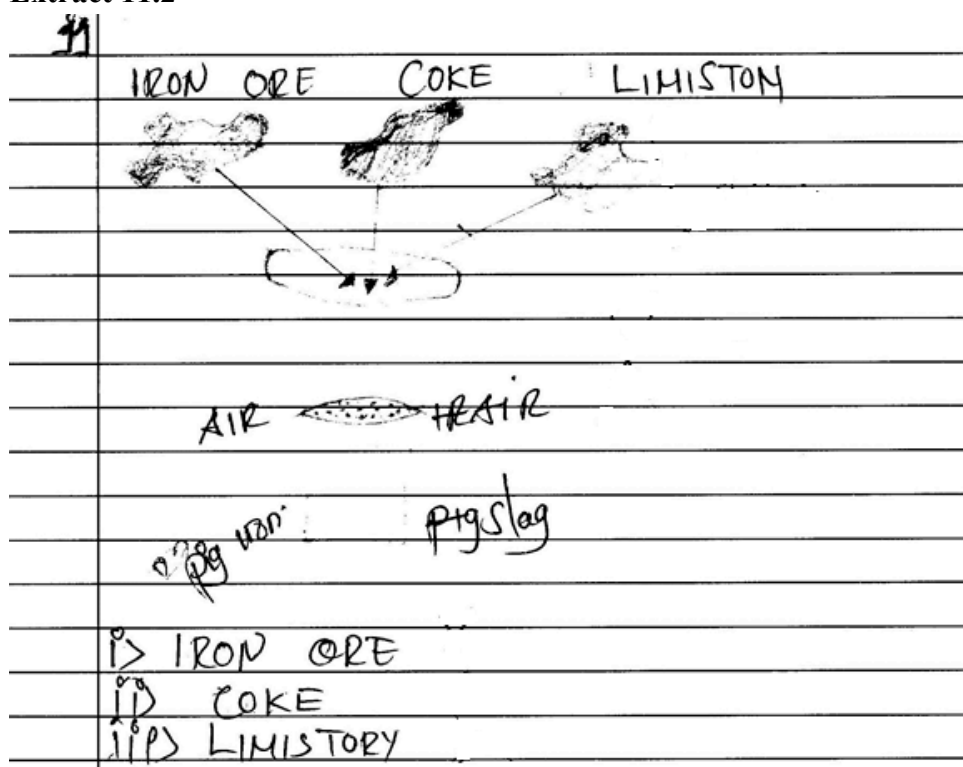 11
IRON ORE COKE LIMISTOM
AIR HRAIR
pig iron. pigslag
i> IRON ORE
ii> COKE
iii> LIMISTORY